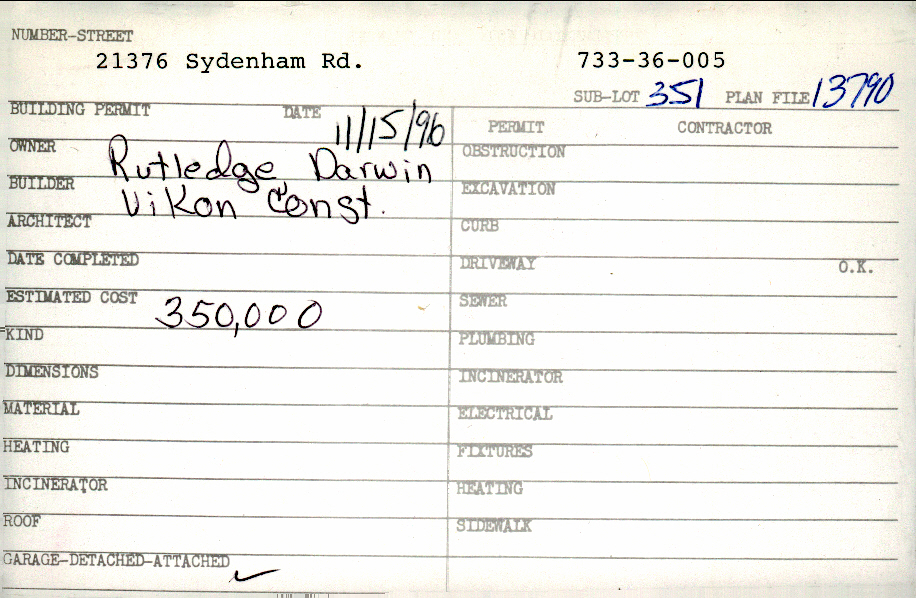 NUMBER-STREET
21376 Sydenham Rd. 733-36-005
SUB-LOT 351 PLAN FILE 13790
BUILDING PERMIT DATE 11/15/96
PERMIT CONTRACTOR
OWNER Rutledge, Darwin
OBSTRUCTION
BUILDER Vikon Const.
EXCAVATION
ARCHITECT
CURB
DATE COMPLETED
DRIVEWAY O.K.
ESTIMATED COST 350,000
SEWER
KIND
PLUMBING
DIMENSIONS
INCINERATOR
MATERIAL
ELECTRICAL
HEATING
FIXTURES
INCINERATOR
HEATING
ROOF
SIDEWALK
GARAGE-DETACHED-ATTACHED ✓